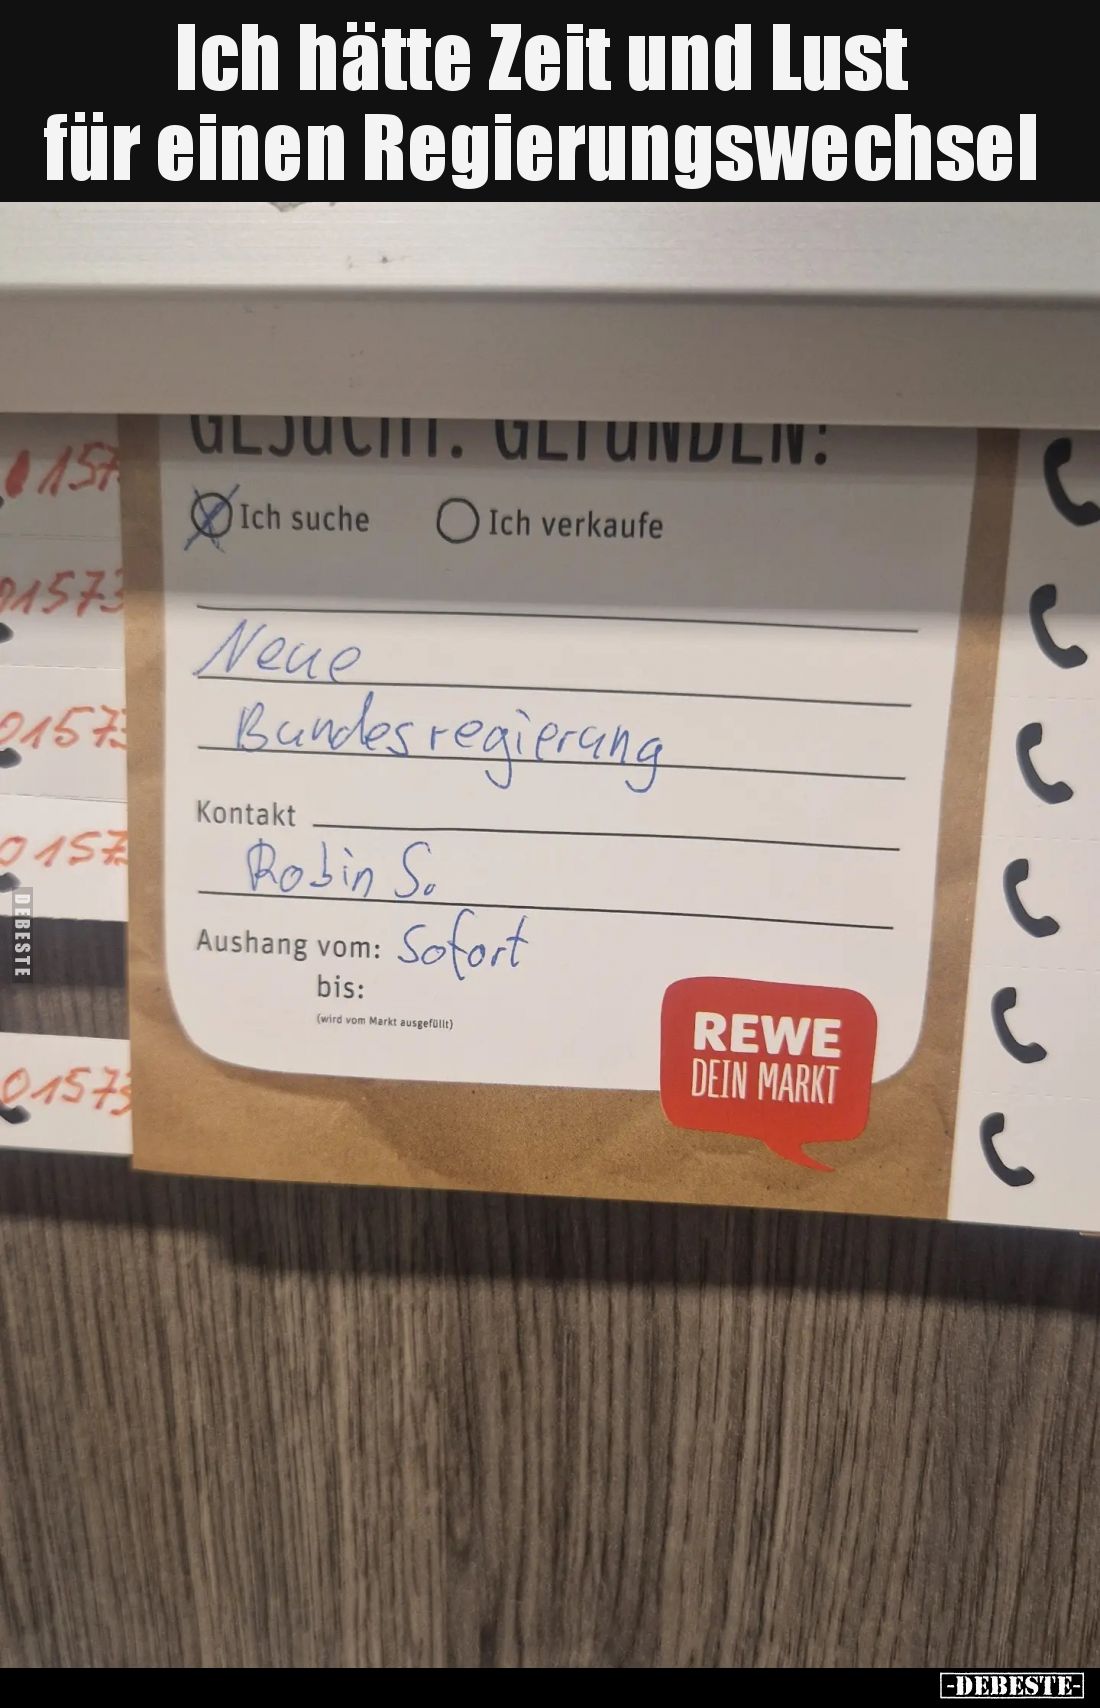 Ich hätte Zeit und Lust
für einen Regierungswechsel
GESUCHT. GEFUNDEN!
Ich suche
Ich verkaufe
Neue
Bundesregierung
Kontakt
Robin S.
Aushang vom: Sofort
bis:
(wird vom Markt ausgefüllt)
REWE
DEIN MARKT
0157
01573
01573
0157
01573
DEBESTE
-DEBESTE-